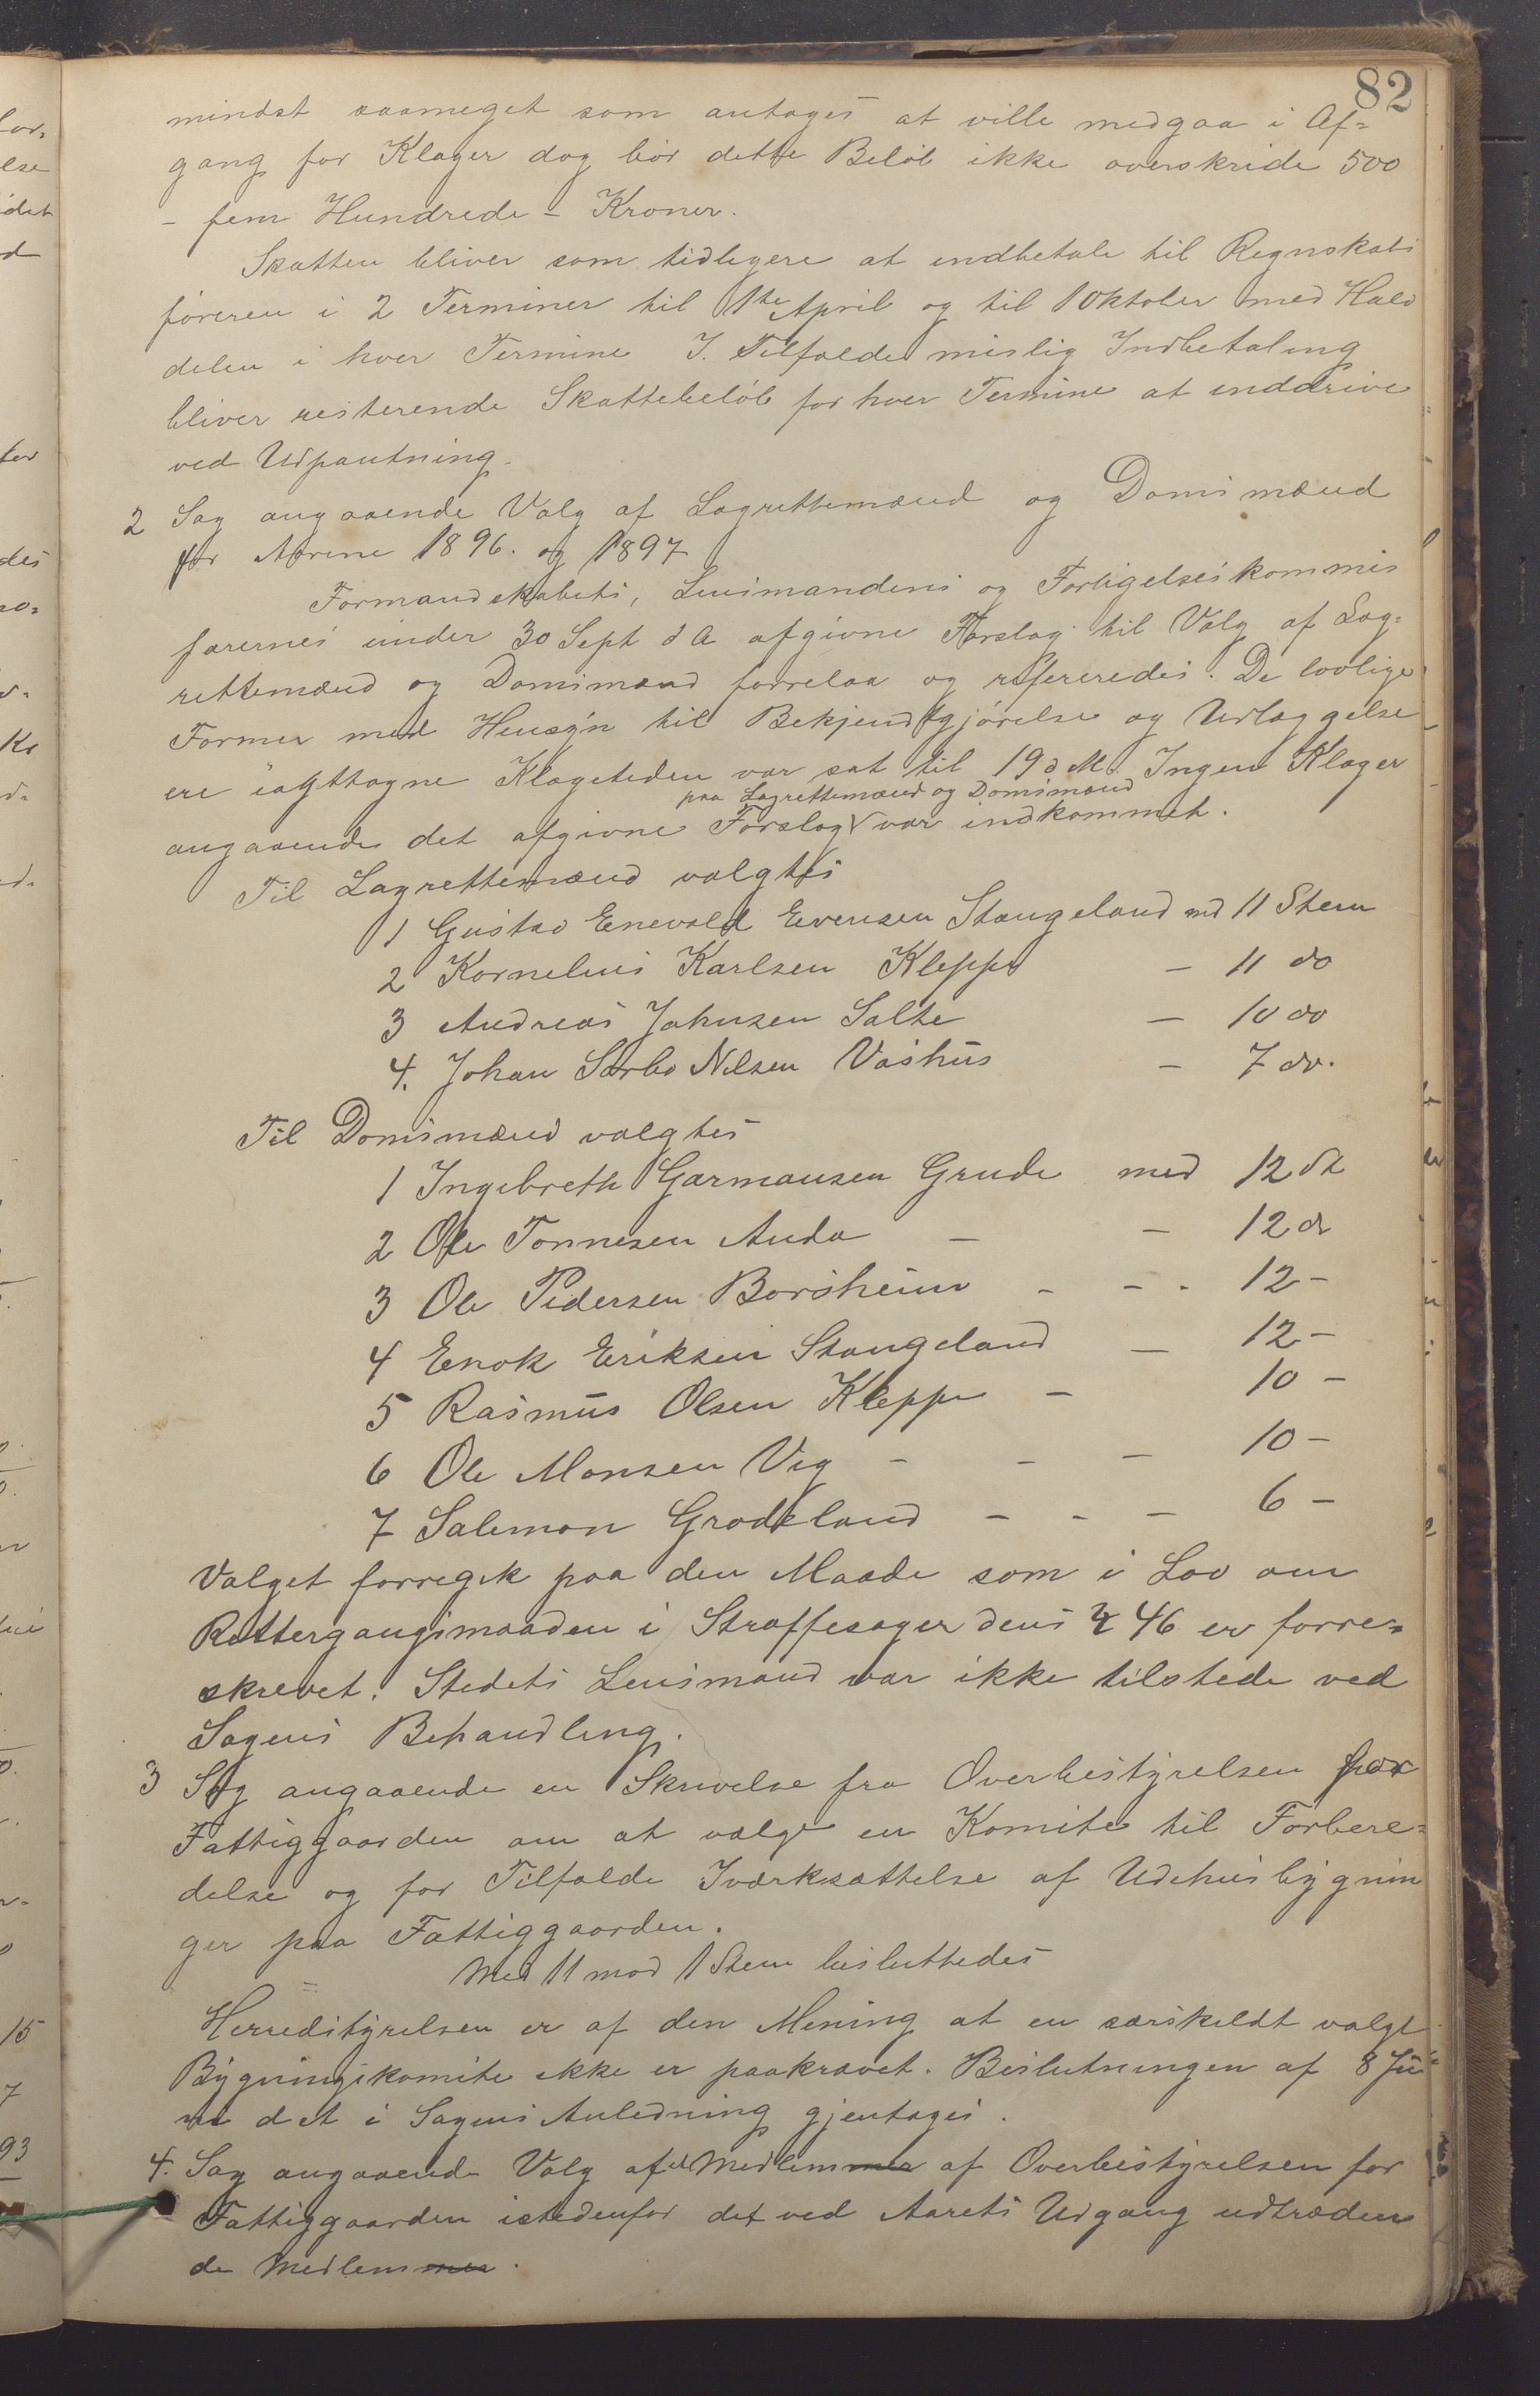 82
mindst saameget som antages at ville medgaa i Af=
gang for Klager dog bör dette Belöb ikke overskride 500
- fem Hundrede - Kroner.
Skatten bliver som tidligere at indbetale til Regnskabs
föreren i 2 Terminer til 1ste April og til 1 Oktober med Halv
delen i hver Termine I. Tilfælde mislig Indbetaling
bliver resterende Skattebelöb for hver Termine at inddrive
ved Udpantning.
2 Sag angaaende Valg af Lagrettemænd og Domsmænd
for Aarene 1896. og 1897
Formandskabets, Lensmandens og Forligelseskommis
færernes under 30 Sept d A afgivne Forslag til Valg af Lag=
rettemænd og Domsmænd forrelaa og refereredes. De lovlige
Former med Hensyn til Bekjendtgjörelse og Udlæggelse
ere iagttagne Klagetiden var sat til 19 d M. Ingen Klager
paa Lagrettemænd og Domsmænd
angaaende det afgivne Forslag var indkommet.
Til Lagrettemænd valgtes
1 Gustav Enevold Evensen Stangeland md 11 Stem
2 Kornelius Karlsen Kleppe - 11 do
3 Andreas Johnsen Salte - 10 do
4. Johan Sørbø Nilsen Vashus - 7 do.
Til Domsmænd valgtes
1 Ingebreth Garmansen Grude med 12 St
2 Ole Tonnesen Anda - - 12 do
3 Ole Pedersen Borsheim - - - 12 -
4 Enok Eriksen Stangeland - 12 -
5 Rasmus Olsen Kleppe - 10 -
6 Ole Monsen Vig - - - 10 -
7 Salemon Grødeland - - - 6 -
Valget forregik paa den Maade som i Lov om
Rettergangsmaaden i Straffesager dens § 46 er forre=
skrevet. Stedets Lensmand var ikke tilstede ved
Sagens Behandling.
3 Sag angaaende en Skrivelse fra Overbestyrelsen for
Fattiggaarden om at vælge en Komite til Forbere=
delse og for Tilfælde Iværksættelse af Udehusbygnin
ger paa Fattiggaarden.
Med 11 mod 1 Stem besluttedes
Herredstyrelsen er af den Mening at en særskildt valgt
Bygningskomite ikke er paakrævet. Beslutningen af 8 Ju
ni det i Sagens Anledning gjentages.
4. Sag angaaende Valg af Medlemmer af Overbestyrelsen for
Fattiggaarden istedenfor det ved Aarets Udgang udtræden
de Medlemmer.